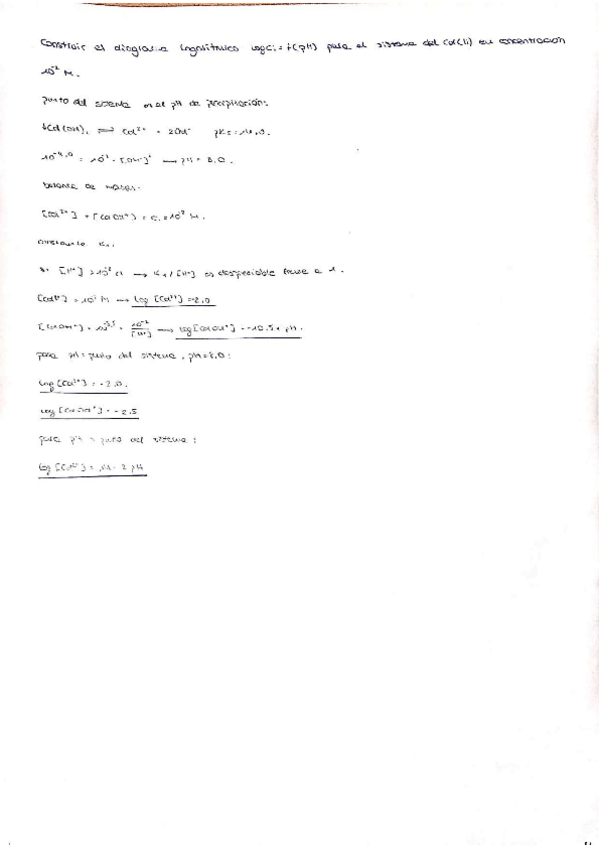 Construir el diagrama logarítmico logCi = f(pH) para el sistema del Cd(II) en concentración
10⁻² M.
punto del sistema es el pH de precipitación:
↓Cd(OH)₂ ⇌ Cd²⁺ + 2OH⁻ pKs = 14.0.
= 10⁻² · [OH⁻]² → pH = 8.0.
balance de masas:
[Cd²⁺] + [CdOH⁺] = c = 10⁻² M.
K₁
[H⁺] > 10⁻² → K₁/[H⁺] es despreciable frente a 1.
[Cd²⁺] = 10⁻² M → log [Cd²⁺] = -2.0
[CdOH⁺] = · 10⁻²/[H⁺] → log[CdOH⁺] = -10.5 + pH.
para pH = punto del sistema, pH = 8.0:
log [Cd²⁺] = -2.0.
log [CdOH⁺] = -2.5
para pH > punto del sistema:
log [Cd²⁺] = 14 - 2 pH